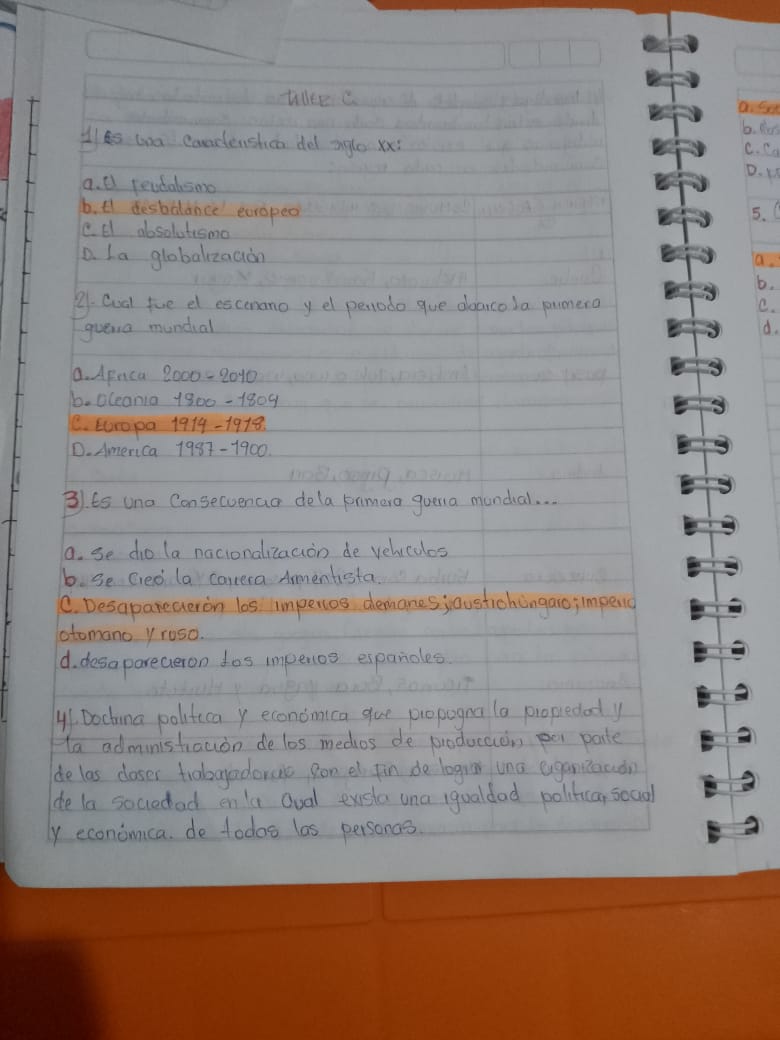 taller C
1) Es una Caracteristica del siglo XX:
a. El feudalismo
b. El desbalance europeo
C. El absolutismo
D. La globalización
2). Cual fue el escenario y el periodo que abarco la primera
guerra mundial
a. Africa 2000-2010
b. Oceania 1800-1809
C. Europa 1914-1918.
D. America 1987-1900.
3). Es una Consecuencia de la primera guerra mundial...
a. se dio la nacionalización de vehiculos
b. se creó la carrera Armentista.
C. Desaparecierón los imperios alemanes; austrohúngaro; imperio
otomano y ruso.
d. desaparecieron los imperios españoles.
4). Doctrina politica y económica que propugna la propiedad y
la administración de los medios de producción por parte
de las clases trabajadoras con el fin de lograr una organización
de la sociedad en la cual exista una igualdad politica, social
y económica. de todas las personas.
a.
b.
C.
D.
5.
a.
b.
C.
d.